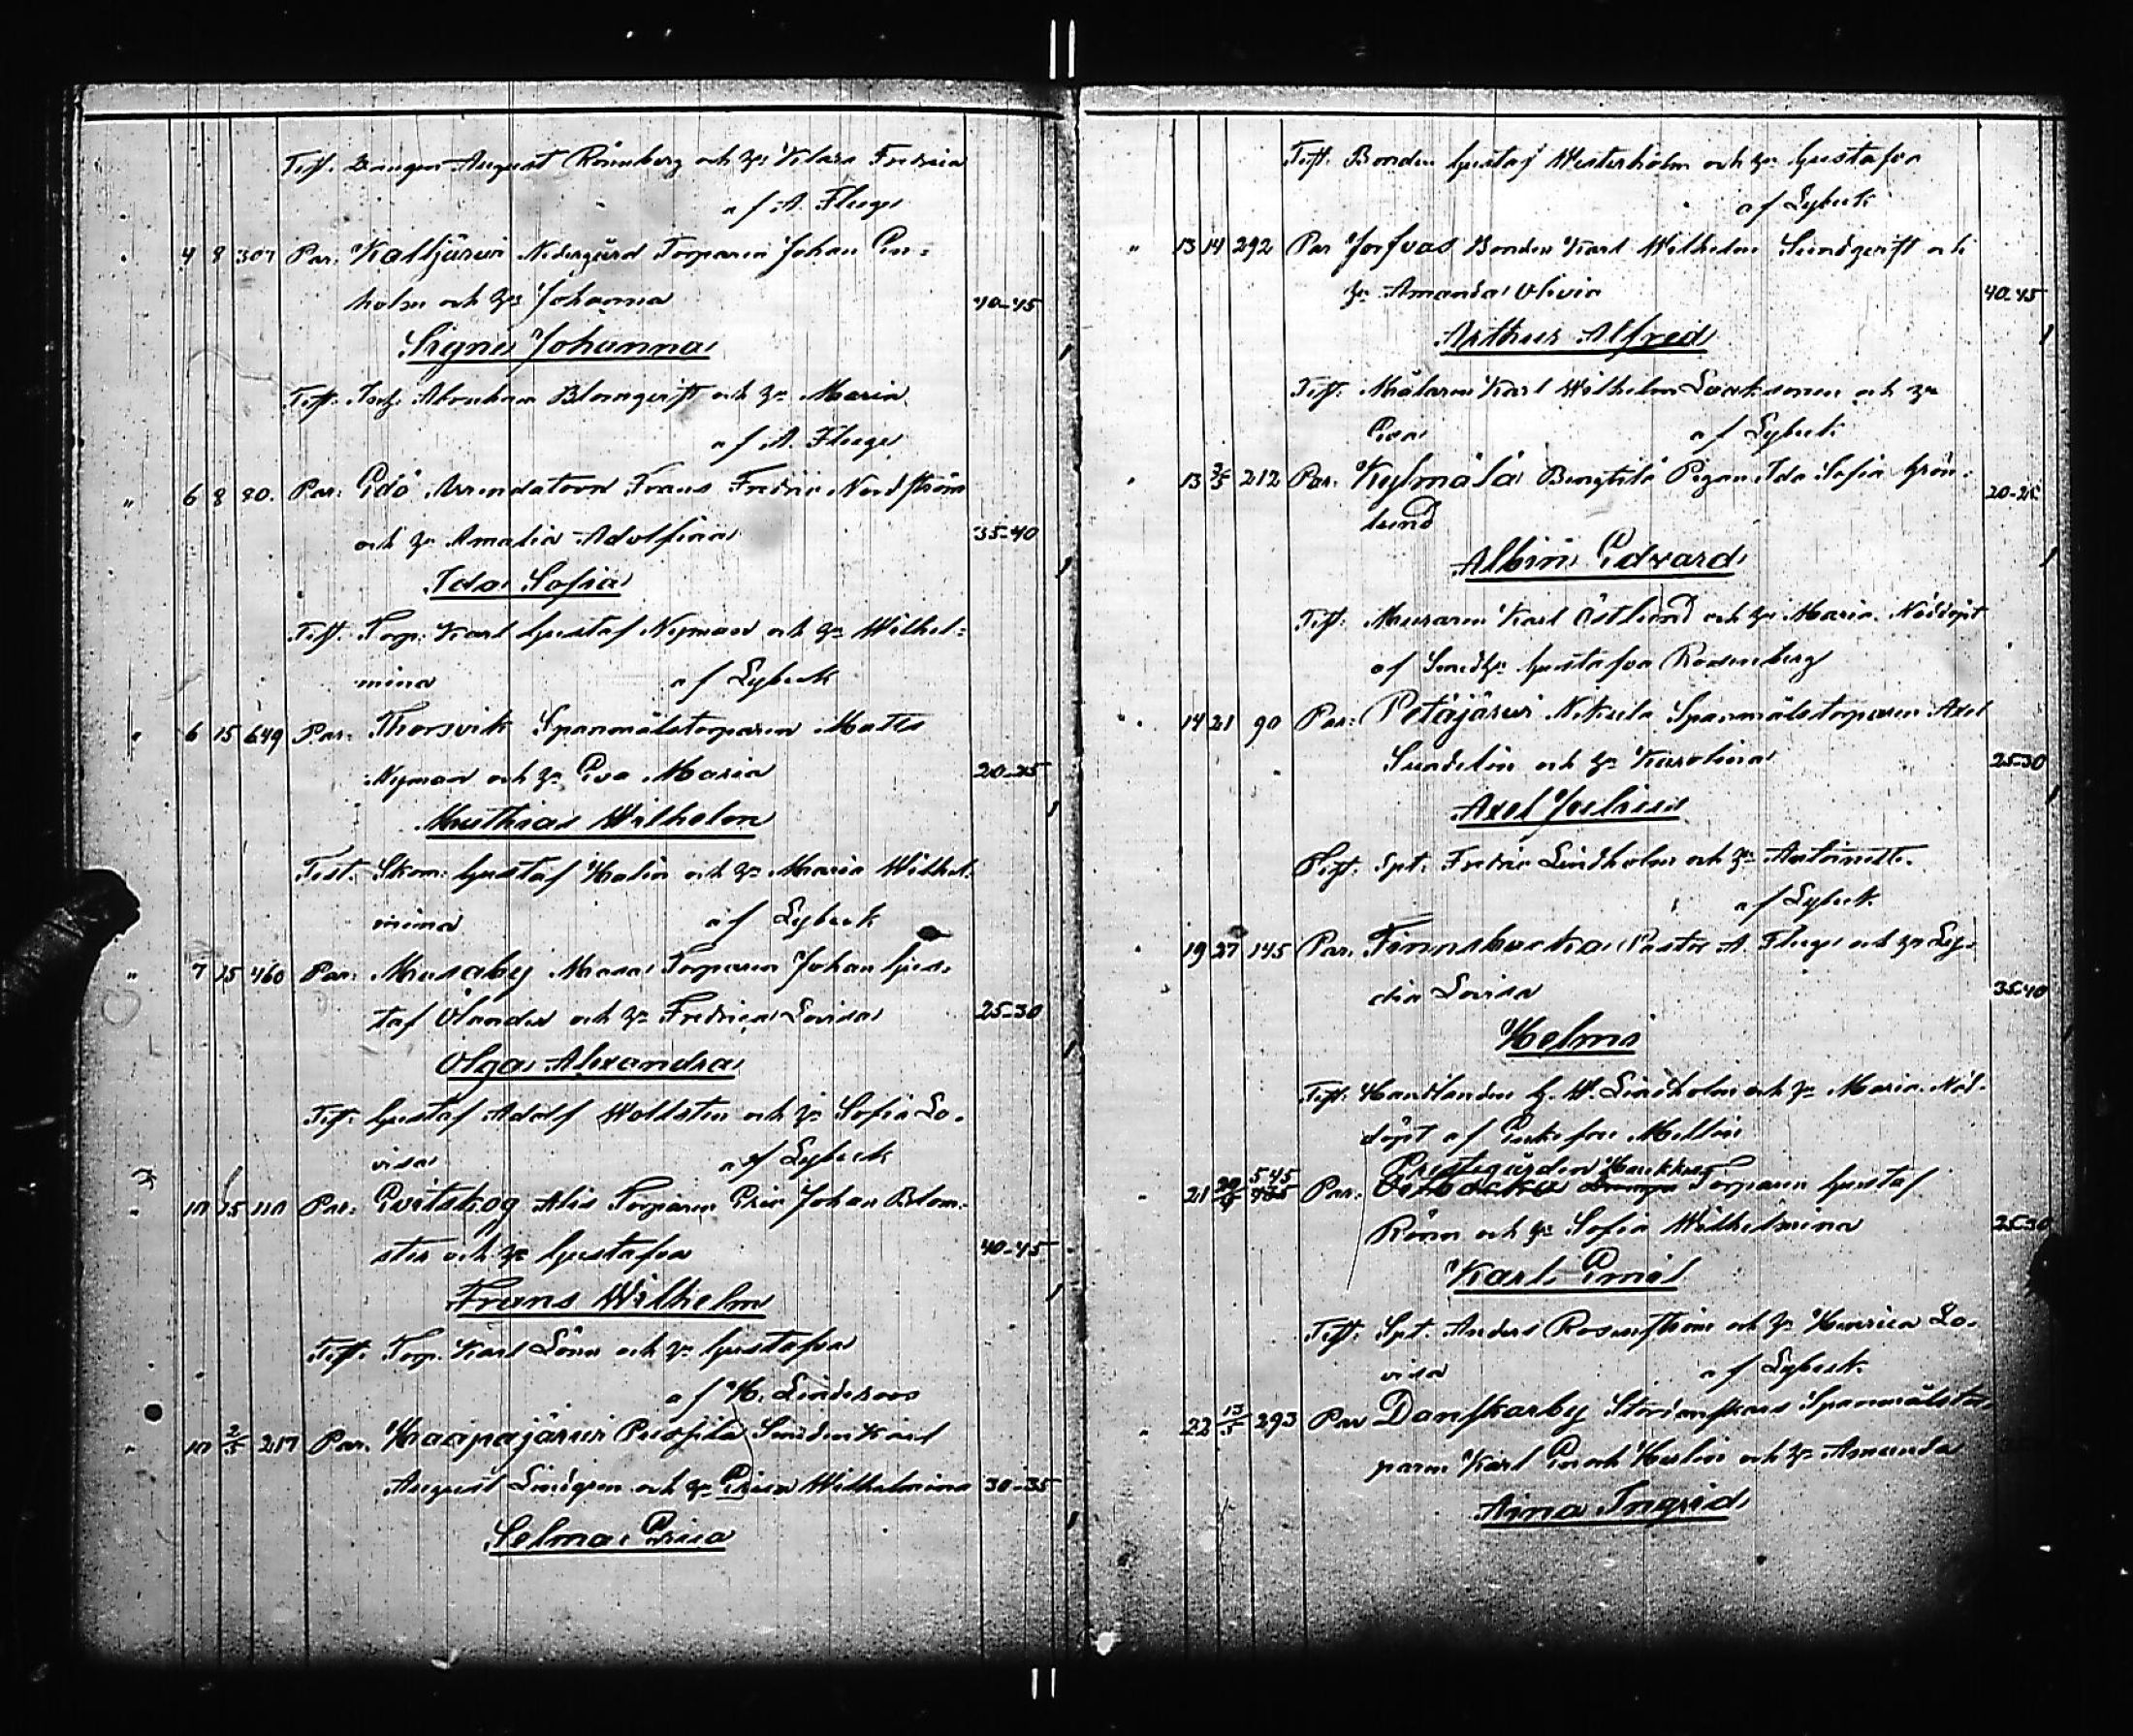 Test. August Rönnberg och h:u Klara Fredrica
af A. Fluge
4 8 307 Par: Kaltjärvi Nedergård Torparen Johan En=
holm och h:u Johanna 40-45
Signe Johanna
Test: Abraham Blomqvist och h:u Maria
af A. Fluge
" 6 8 80. Par: Edö Arrendatorn Frans Fredric Nordström
och h:u Amalia Adolfina 35-40
Ida Sofia
Test. Torp: Karl Gustaf Nyman och h:u Wilhel=
mina af Lybeck
" 6 15 649 Par: Thorsvik Spanmålstorparen Matts
Nyman och h:u Eva Maria 20-25
Mathias Wilhelm
Test. Skom: Gustaf Malin och h:u Maria Wilhel=
mina af Lybeck
" 7 15 460 Par: Masaby Masas Torparen Johan Gus=
taf Ölander och h:u Fredrica Lovisa 25-30
Olga Alexandra
Test: Gustaf Adolf Wallsten och h:u Sofia Lo=
visa af Lybeck
" 10 15 110 Par: Evitskog Alis Torparen Eric Johan Blom=
ster och h:u Gustafva 40-45
Frans Wilhelm
Test. Torp. Karl Lönn och h:u Gustafva
af K. Linderoos
" 10 2/5 217 Par. Haapajärvi Smeden Karl
August Lindgren och h:u Erica Wilhelmina 30-35
Selma Erica
Test. Bonden Gustaf Westerholm och h:u Gustafva
af Lybeck
" 13 14 292 Par Jorfvas Bonden Karl Wilhelm Sundqvist och
h:u Amanda Olivia 40-45
Arthur Alfred
Test: Målaren Karl Wilhelm och h:u
Eva af Lybeck
" 13 3/5 212 Par. Kylmälä Bengtilä Pigan Ida Sofia Grön=
lund 20-25
Albin Edvard
Test: Muraren Karl Östlund och h:u Maria. Nöddöpt
af Gustafva Rosenberg
" 14 21 90 Par: Petäjärvi Nikkilä Spanmålstorparen Axel
Sundelin och h:u Karolina 25-30
Axel Julius
Test. Spt: Fredric Lindholm och h:u Antoinette.
af Lybeck.
" 19 27 145 Par. Finnsbacka Pastor A. Fluge och h:u Ly=
dia Lovisa 35-40
Helmi
Test: Handlanden G. W. Lindholm och h:u Maria. Nöd=
döpt af Enkefru Mellin
Prestgården
545
" 21 Par: Torparen Gustaf
Rönn och h:u Sofia Wilhelmina 25-30
Karl Emil
Test: Spt. Anders Rosenström och h:u Henrica Lo=
visa af Lybeck.
" 22 13/5 293 Par Danskarby Spanmålstor=
paren Karl Enoch Malin och h:u Amanda
Aina Ingrid